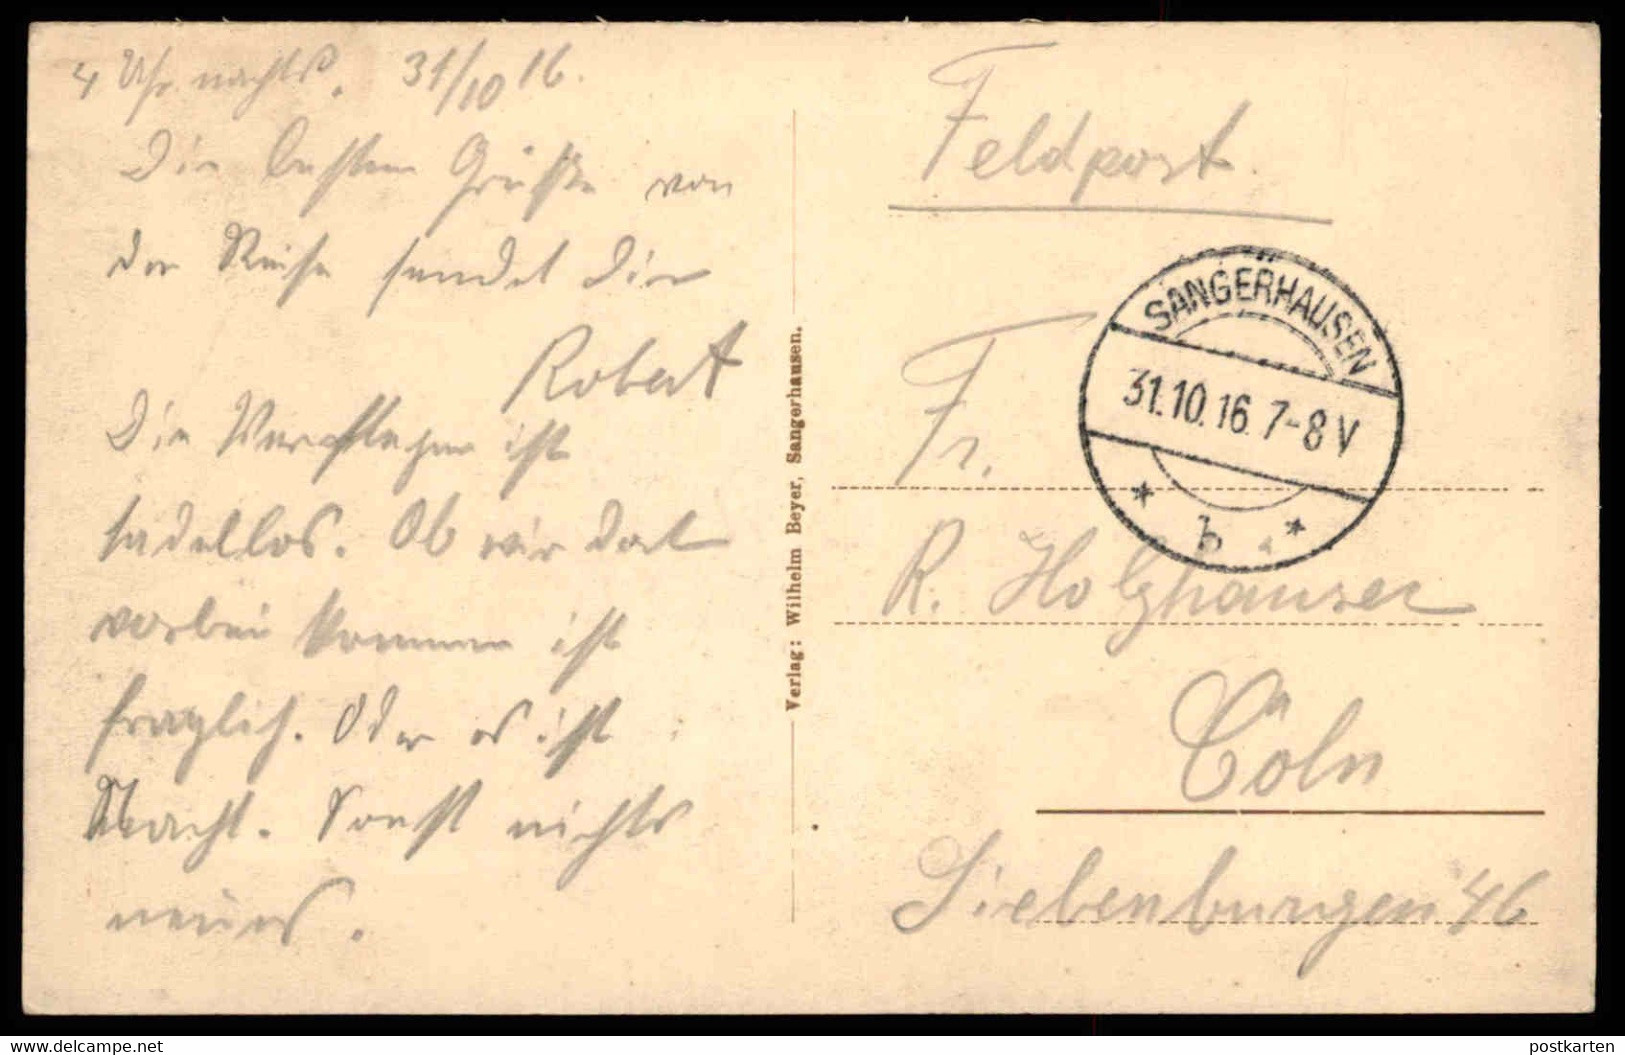 4 Uhr nachts. 31/10 16.
Die besten Grüße von
der Reise sendet Dir
Robert
Die Verpflegung ist
tadellos. Ob wir dort
vorbei kommen ist
fraglich. Oder es ist
Nacht. Sonst nichts
neues.
Verlag: Wilhelm Beyer, Sangerhausen.
Feldpost.
SANGERHAUSEN
31.10.16.7-8V
* b *
Fr.
R. Holzhauser
Cöln
Siebenburgen 46
www.delcampe.net
postkarten